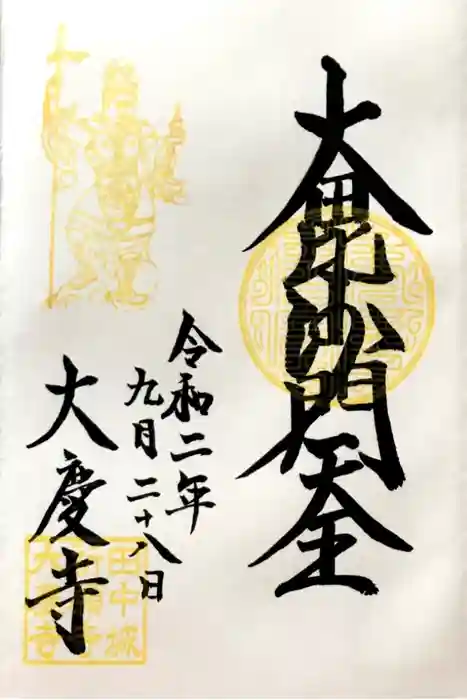 大毘沙門天王
令和二年
九月二十八日
大慶寺
田中城
大慶寺